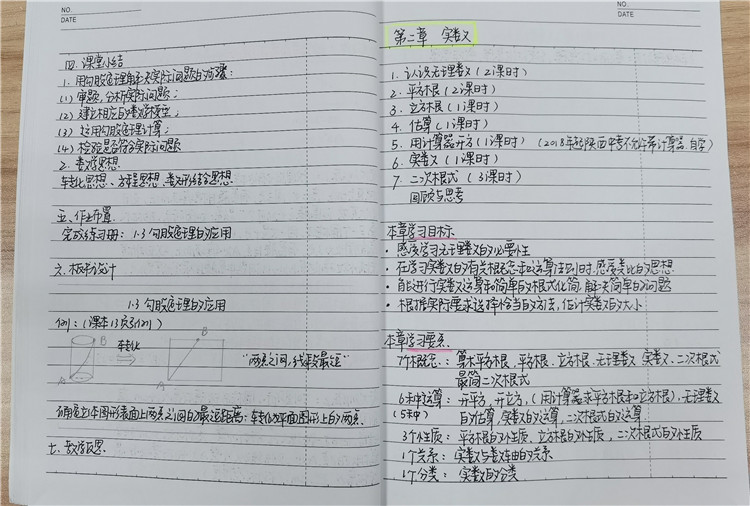 NO.
DATE
四. 课堂小结
1. 用勾股定理解决实际问题的步骤:
(1) 审题,分析实际问题;
(2) 建立相应的数学模型;
(3) 运用勾股定理计算;
(4) 检验是否符合实际问题
2. 数学思想
转化思想、方程思想、数形结合思想
五、作业布置
完成练习册: 1.3 勾股定理的应用
六、板书设计
1.3 勾股定理的应用
例1: (课本13页例1)
B
B
转化
A
A
"两点之间,线段最短"
确定立体图形表面上两点之间的最短距离: 转化成平面图形上的两点.
七、教学反思
NO.
DATE
第二章 实数
1. 认识无理数 (2课时)
2. 平方根 (2课时)
3. 立方根 (1课时)
4. 估算 (1课时)
5. 用计算器开方 (1课时) (2018年起陕西中考不允许带计算器, 自学)
6. 实数 (1课时)
7. 二次根式 (3课时)
回顾与思考
本章学习目标
• 感受学习无理数的必要性
• 在学习实数的有关概念和运算法则时,感受类比的思想.
• 能进行实数运算和简单的根式化简,解决简单的问题
• 根据实际要求选择恰当的方法,估计实数的大小
本章学习要素.
7个概念: 算术平方根、平方根、立方根、无理数、实数、二次根式
最简二次根式
6种运算: 开平方,开立方,(用计算器求平方根和立方根),无理数
(5种) 的估算,实数的运算,二次根式的运算
3个性质: 平方根的性质,立方根的性质,二次根式的性质
1个关系: 实数与数轴的关系
1个分类: 实数的分类